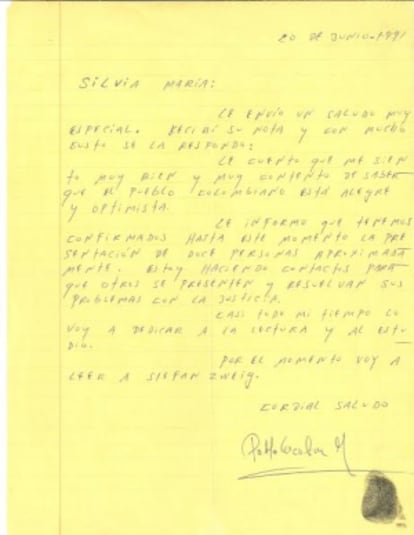 20 DE JUNIO-1991
SILVIA MARIA:
LE ENVIO UN SALUDO MUY
ESPECIAL. RECIBI SU NOTA Y CON MUCHO
GUSTO SE LA RESPONDO:
LE CUENTO QUE ME SIEN
TO MUY BIEN Y MUY CONTENTO DE SABER
QUE EL PUEBLO COLOMBIANO ESTÁ ALEGRE
Y OPTIMISTA.
LE INFORMO QUE TENEMOS
CONFIRMADOS HASTA ESTE MOMENTO LA PRE
SENTACIÓN DE DOCE PERSONAS APROXIMADA
MENTE. ESTOY HACIENDO CONTACTOS PARA
QUE OTROS SE PRESENTEN Y RESUELVAN SUS
PROBLEMAS CON LA JUSTICIA.
CASI TODO MI TIEMPO LO
VOY A DEDICAR A LA LECTURA Y AL ESTU
DIO.
POR EL MOMENTO VOY A
LEER A STEFAN ZWEIG.
CORDIAL SALUDO
Pablo Escobar